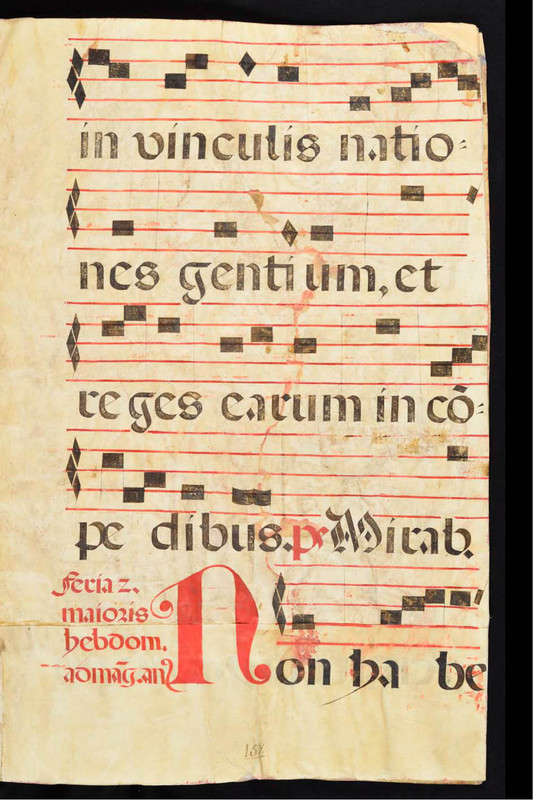 in vinculis natio-
nes gentium, et
reges earum in cō-
pedibus. ps Mirab.
Feria 2.
maioris
hebdom.
ad māg. an̄
Non habe